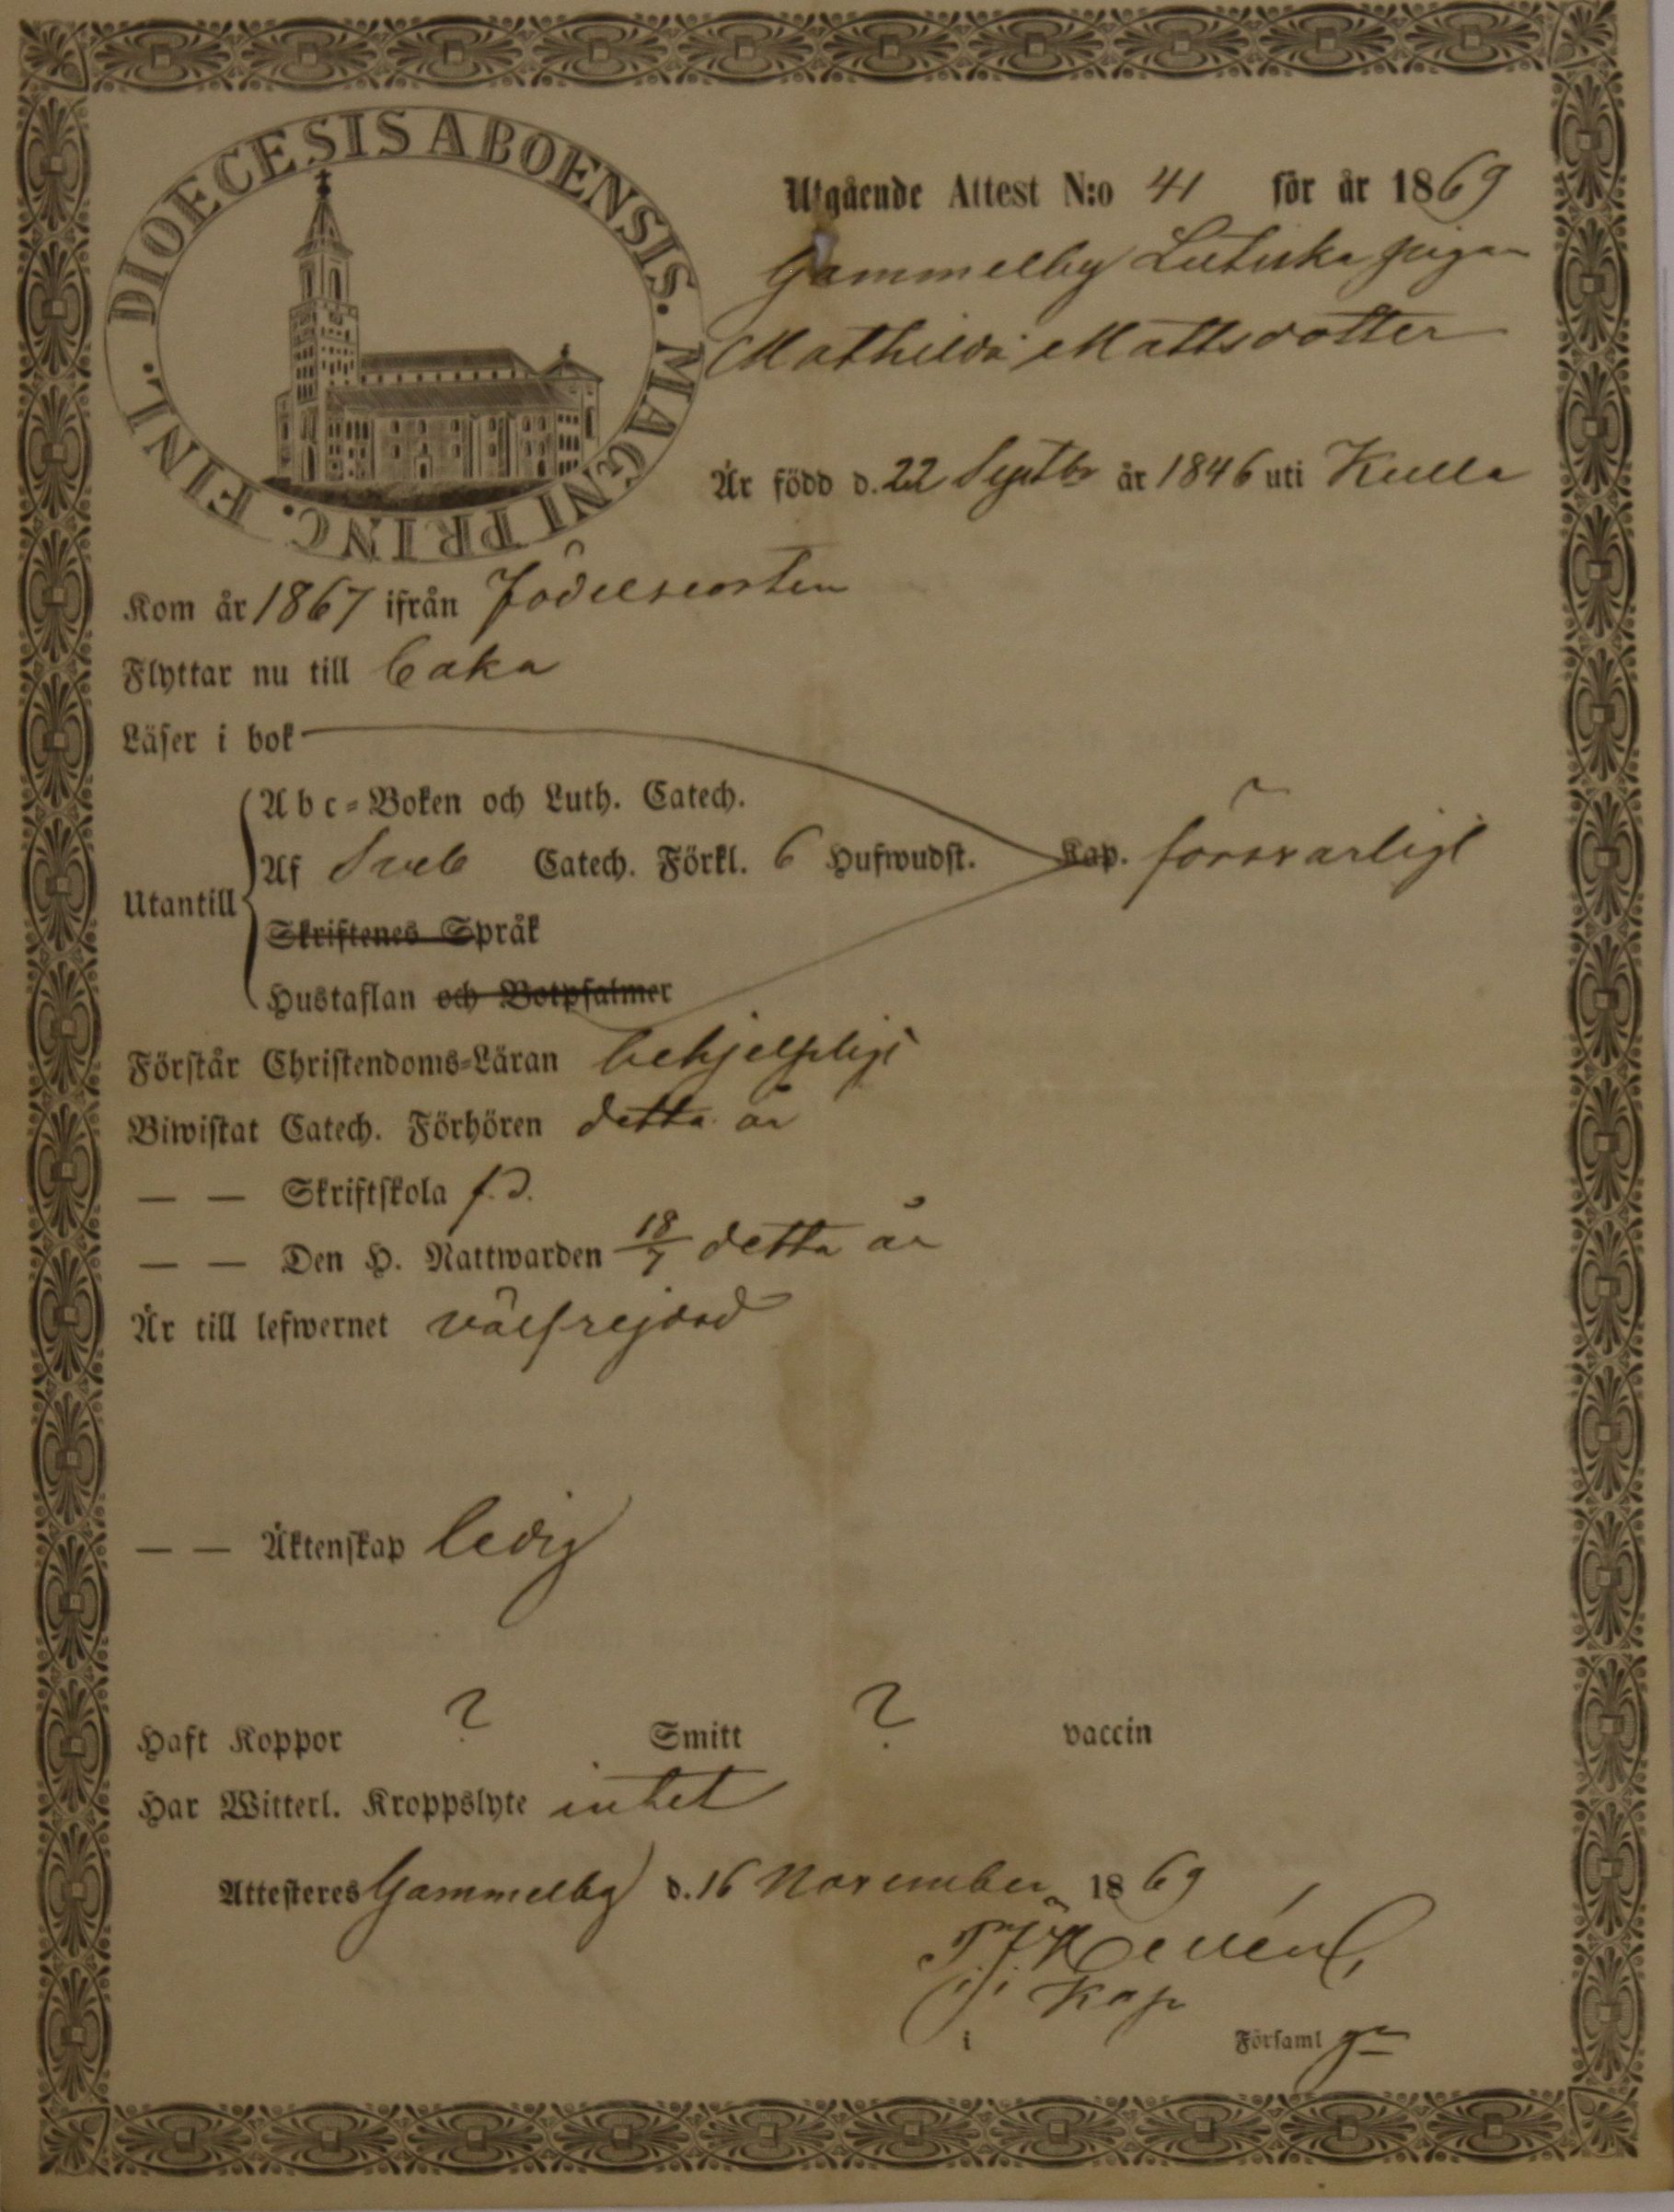 DIOECESIS ABOENSIS. MAGNI PRINC. FINL.
Utgående Attest N:o 41 för år 1869
Gammelby pigan
Mathilda Mattsdotter
Är född d. 22 Septbr år 1846 uti Kulla
Kom år 1867 ifrån Födelseorten
Flyttar nu till
Läser i bok
Abc-Boken och Luth. Catech.
Af Sveb Catech. Förkl. 6 Hufwudst. Kap. försvarligt
Utantill
Skriftenes Språk
Hustaflan och Botpsalmer
Förstår Christendoms-Läran behjelpligt
Biwistat Catech. Förhören detta år
— — Skriftskola f. d.
— — Den H. Nattwarden 18/7 detta år
Är till lefwernet välfrejdad
— — Äktenskap ledig
Haft Koppor ? Smitt ? vaccin
Har Witterl. Kroppslyte intet
Attesteres Gammelby d. 16 November 1869
Kap
i Församl gn